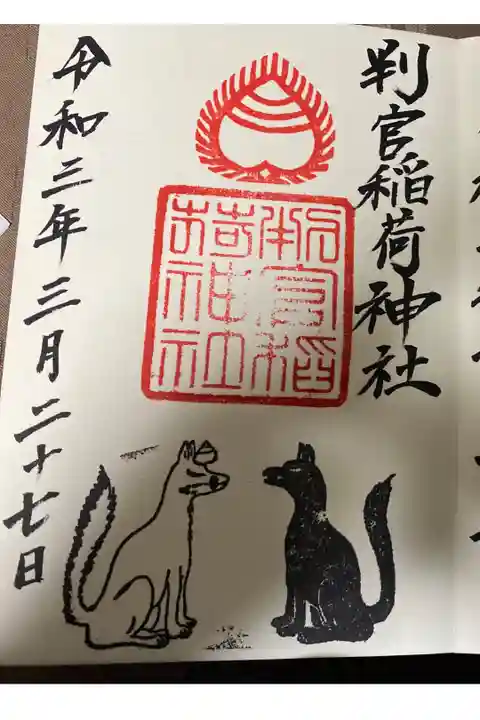 判官稲荷神社
判官稲荷神社
令和三年三月二十七日